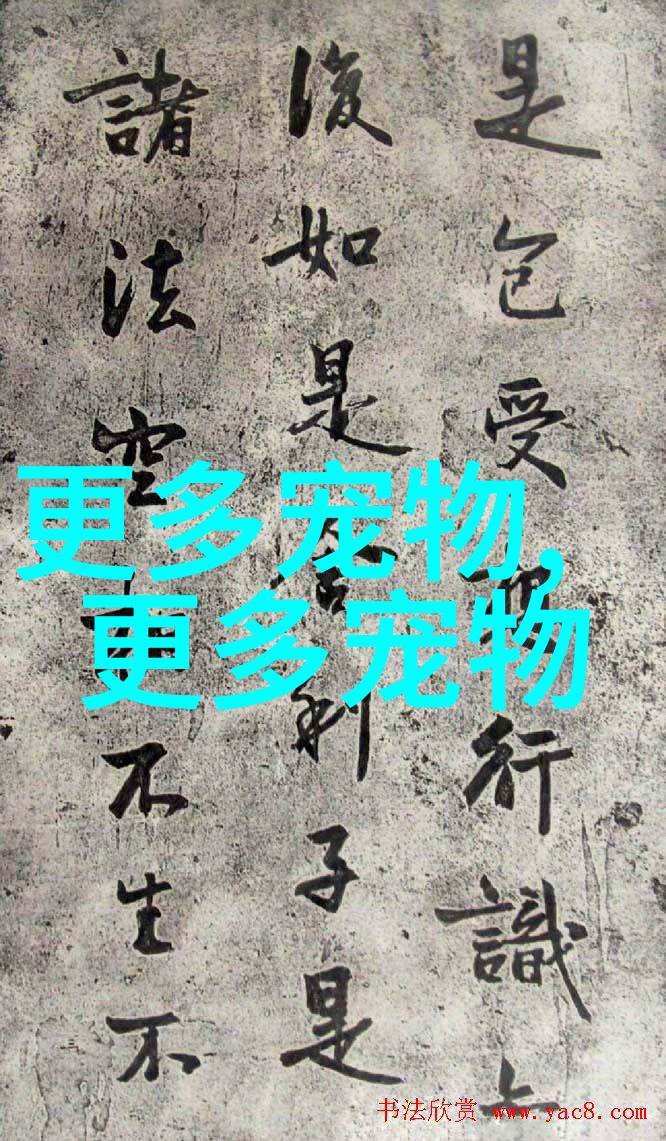 是色受行識
復如是舍利子是
諸法空不生不
更多宠物,
更多宠物
书法欣赏 www.yac8.com